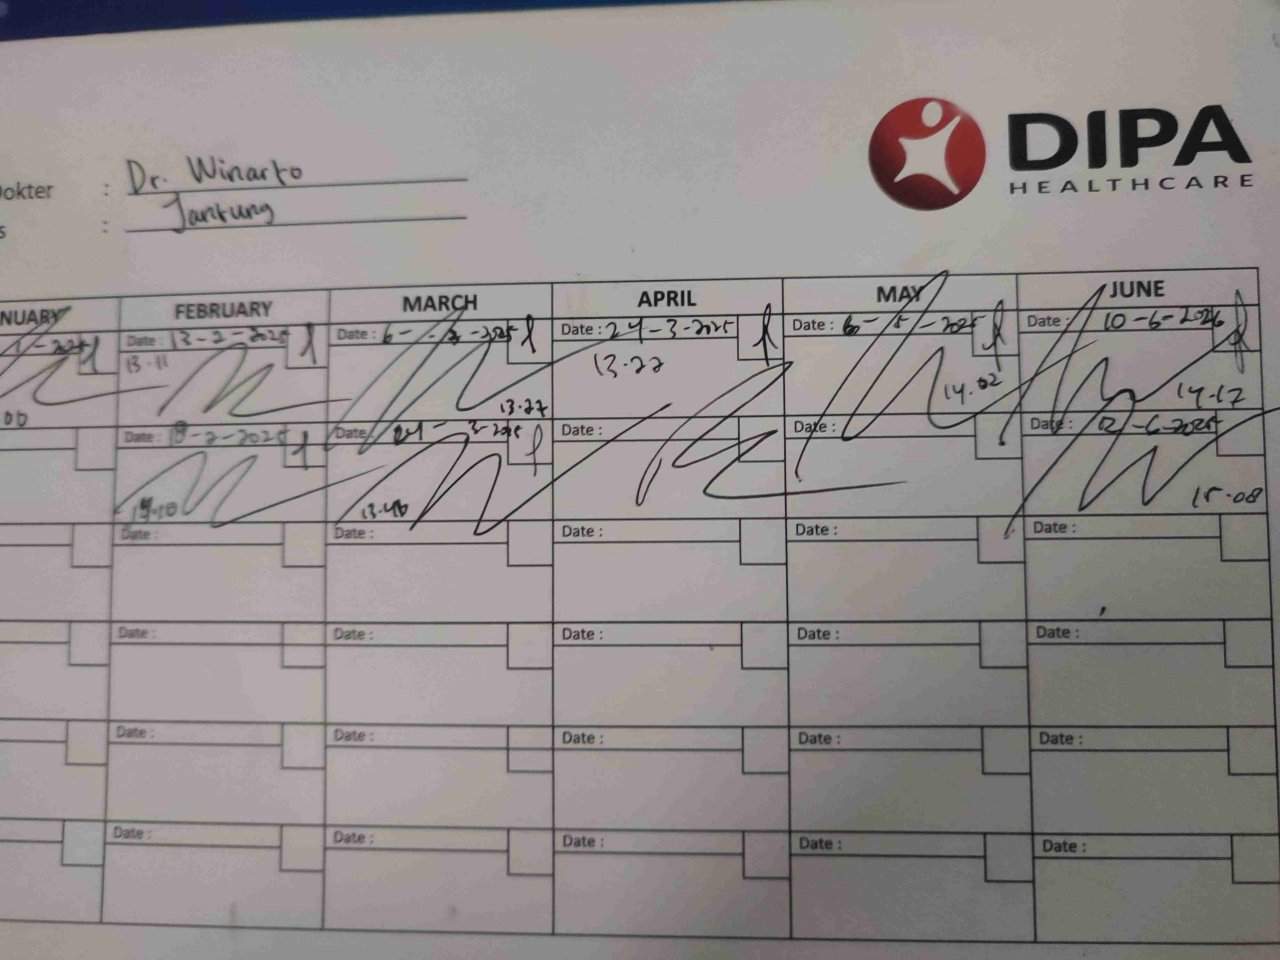 DIPA
HEALTHCARE
Dokter : Dr. Winarto
s : Jantung
NUARY FEBRUARY MARCH APRIL MAY JUNE
Date : 13-2-2025 Date : 6- -2025 Date : 24-3-2025 Date : 6-5-2025 Date : 10-6-2026
13.11 13.27 13.22 14.02 14.17
00
Date : -2-2025 Date : 24-3-2025 Date : Date : Date : 12-6-2025
13.46 15.08
Date : Date : Date : Date : Date :
Date : Date : Date : Date : Date :
Date : Date : Date : Date : Date :
Date : Date : Date : Date : Date :